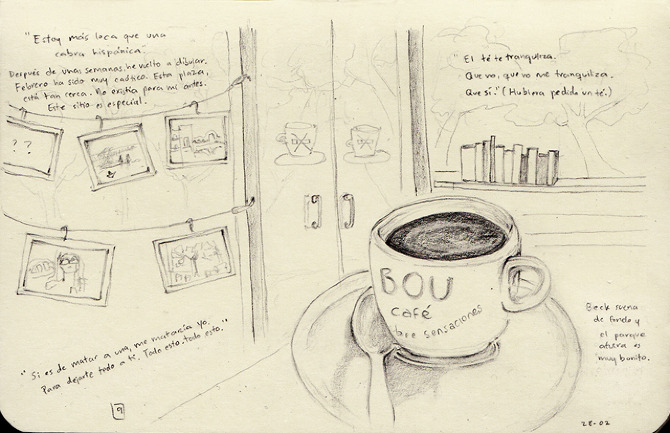 "Estoy más loca que una
cabra hispánica."
Después de unas semanas. he vuelto a dibujar.
Febrero ha sido muy caótico. Esta plaza,
está tan cerca. No existía para mí antes.
Este sitio es especial.
"El té te tranquiliza.
Que no, que no me tranquiliza.
Que sí." (Hubiera pedido un té.)
? ?
BOU
café
sensaciones
Beck suena
de fondo y
el parque
afuera es
muy bonito.
"Si es de matar a una, me mataría yo.
Para dejarte todo a ti. Todo esto. todo esto."
9
28-02